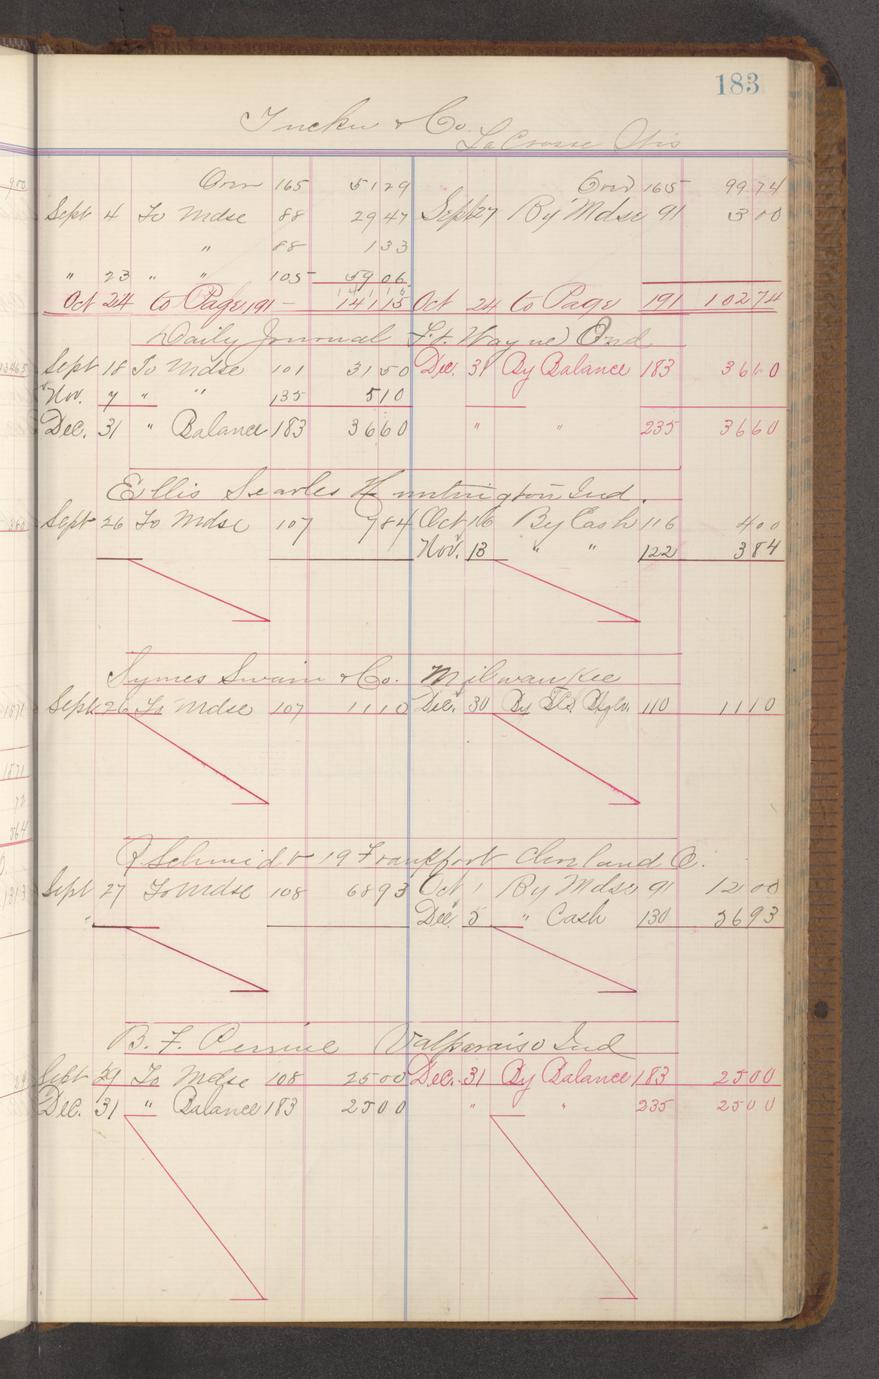 183
& Co.
La Crosse Wis
165 5129 165 9974
Sept 4 To Mdse 88 2947 Sept 27 By Mdse 91 300
" 88 133
" 23 " " 105 5906
Oct 24 to Page 191 - 14115 Oct 24 to Page 191 10274
Daily Journal Ft. Wayne Ind
Sept 18 To Mdse 101 3150 Dec. 31 By Balance 183 3660
Nov. 7 " " 135 510
Dec. 31 " Balance 183 3660 " " 235 3660
Ellis Searles Huntington Ind.
Sept 26 To Mdse 107 784 Oct 16 By Cash 116 400
Nov. 13 " " 122 384
Symes Swain & Co. Milwaukee
Sept 26 To Mdse 107 1110 Dec. 30 By 110 1110
Schmidt 19 Frankfort Cleveland O.
Sept 27 To Mdse 108 6893 Oct 1 By Mdse 91 1200
" Dec 5 " Cash 130 5693
B. F. Perrine Valparaiso Ind
Sept 29 To Mdse 108 2500 Dec. 31 By Balance 183 2500
Dec. 31 " Balance 183 2500 " " 235 2500